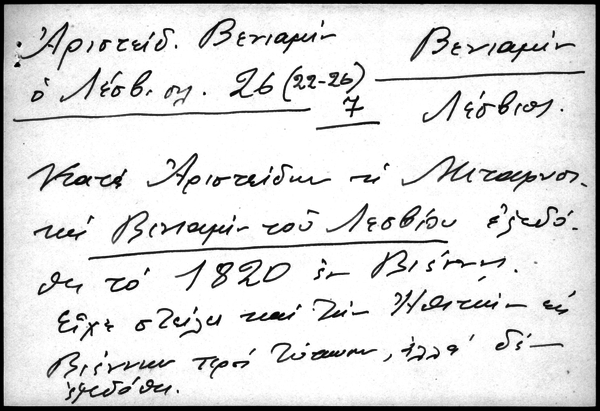 Ἀριστείδ. Βενιαμὶν
Βενιαμὶν
ὁ Λέσβιος. 26 (22-26)
7
Λέσβιος.
Κατὰ Ἀριστείδην τὰ Μεταφυσι-
κὰ Βενιαμὶν τοῦ Λεσβίου ἐξεδό-
θη τὸ 1820 ἐν Βιέννῃ.
Εἶχε στείλει καὶ τὴν Ἠθικὴν εἰς
Βιέννην πρὸς τύπωσιν, ἀλλὰ δὲν
ἐξεδόθη.